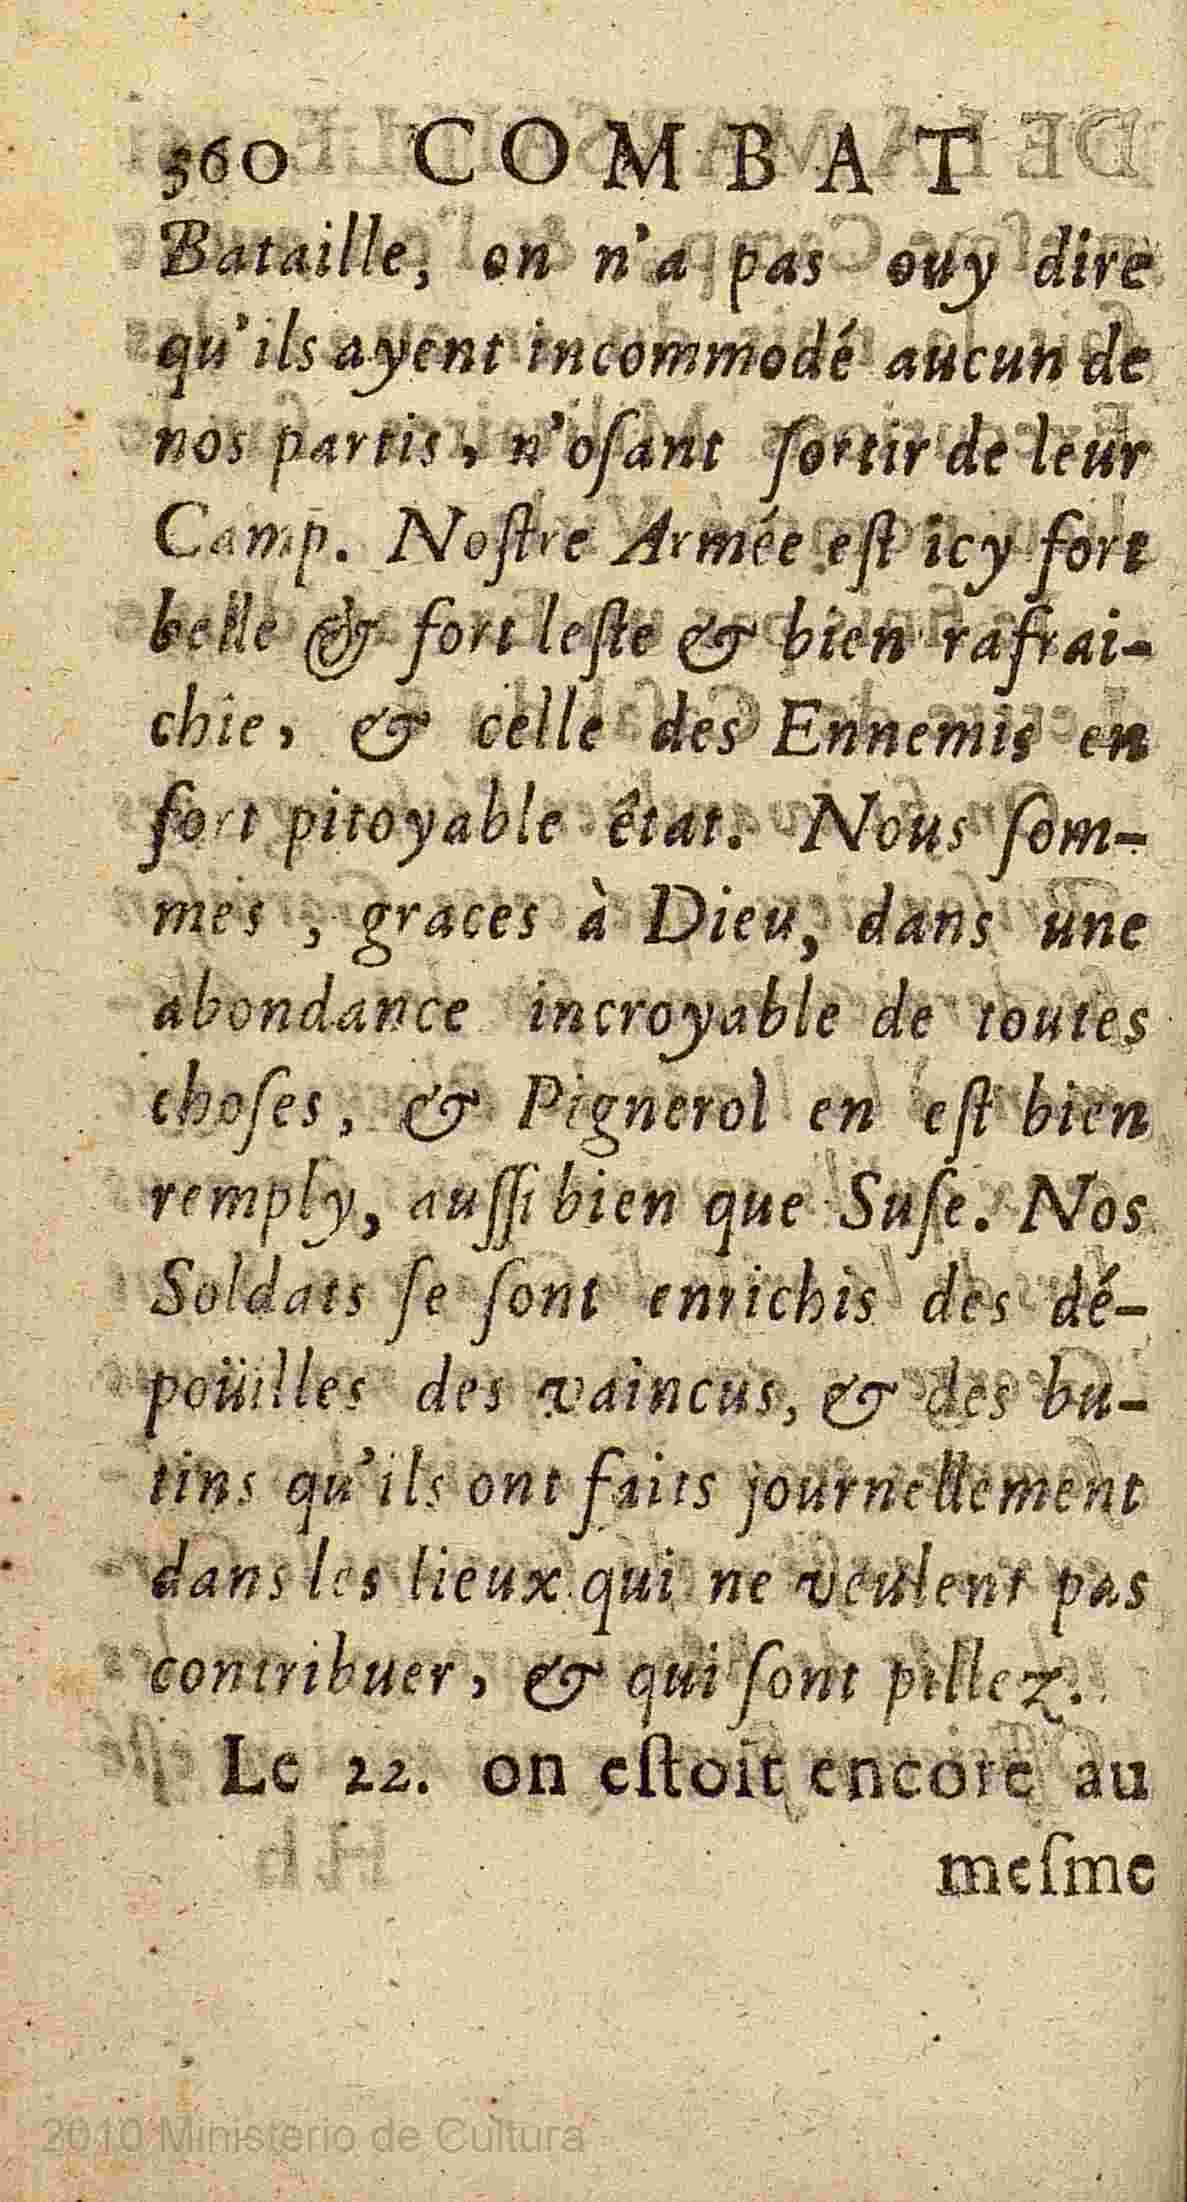 360 COMBAT
Bataille, on n'a pas ouy dire
qu'ils ayent incommodé aucun de
nos partis, n'oſant ſortir de leur
Camp. Noſtre Armée eſt icy fort
belle & fort leſte & bien rafrai-
chie, & celle des Ennemis en
fort pitoyable êtat. Nous ſom-
mes, graces à Dieu, dans une
abondance incroyable de toutes
choſes, & Pignerol en eſt bien
remply, auſſi bien que Suſe. Nos
Soldats ſe ſont enrichis des dé-
poüilles des vaincus, & des bu-
tins qu'ils ont faits journellement
dans les lieux qui ne veulent pas
contribuer, & qui ſont pillez.
Le 22. on eſtoit encore au
meſme
2010 Ministerio de Cultura